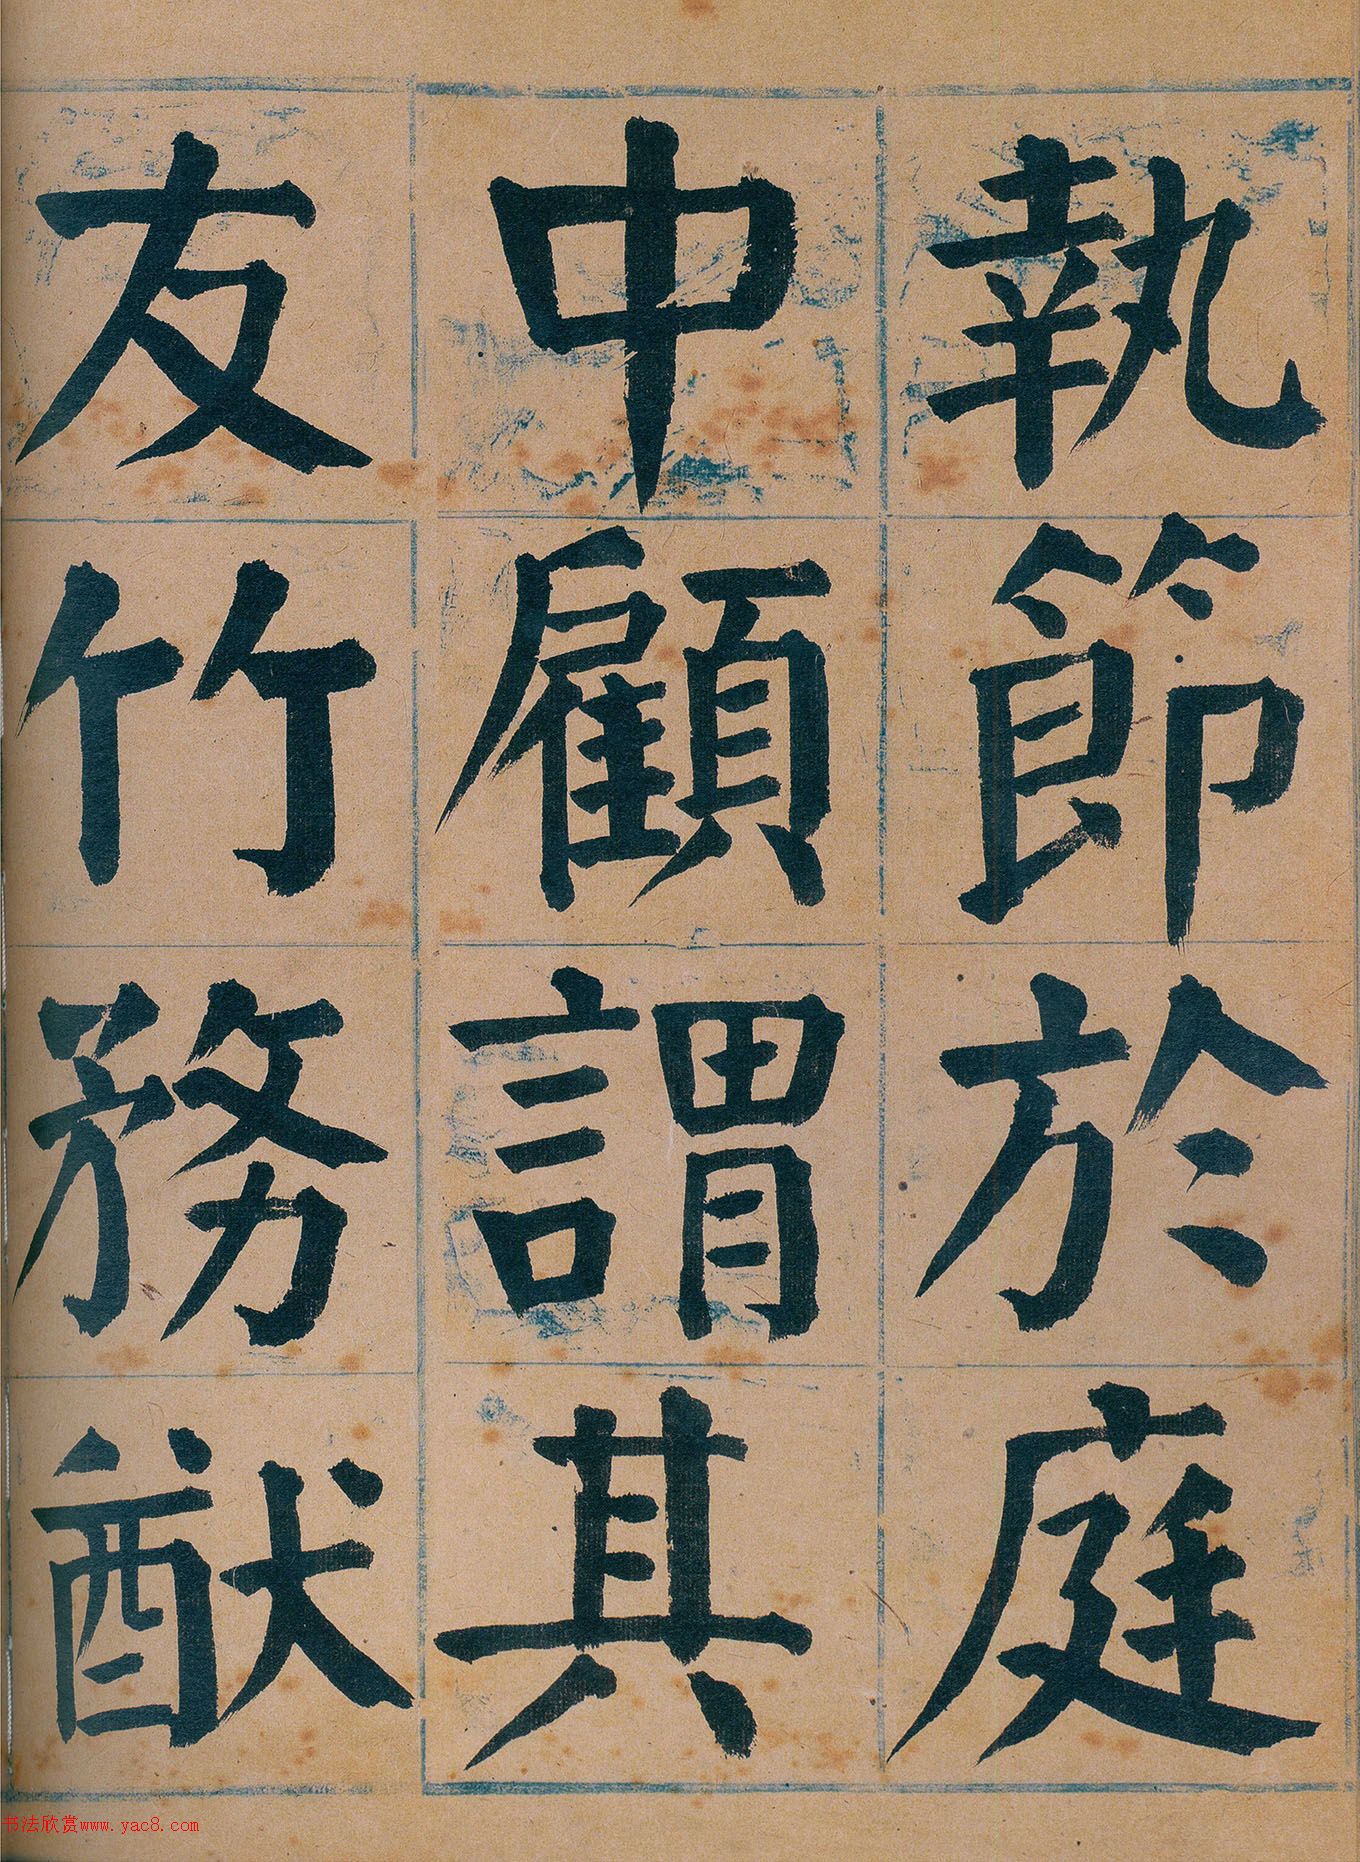 執節於庭
中顧謂其
友竹務猷
书法欣赏www.yac8.com